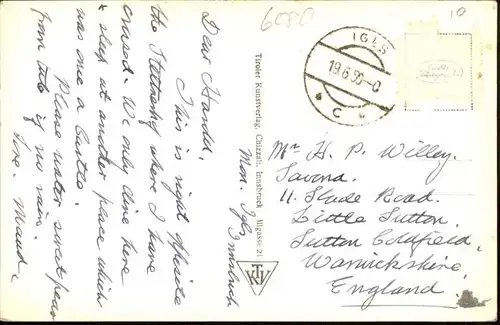 6080
10
Mon. Igls, Innsbruck
Dear Harold,
This is right opposite
the where I have
crossed. We only dine here
& sleep at another place which
was once a Castle.
Please water sweet peas
from tub if no rain.
Love. Maud.
Tiroler Kunstverlag, Chizzali, Innsbruck
TKV
IGLS
19.6.50-0
C
Mr H. P. Willey.
11. Slade Road.
Little Sutton.
Sutton Coldfield,
Warwickshire,
England